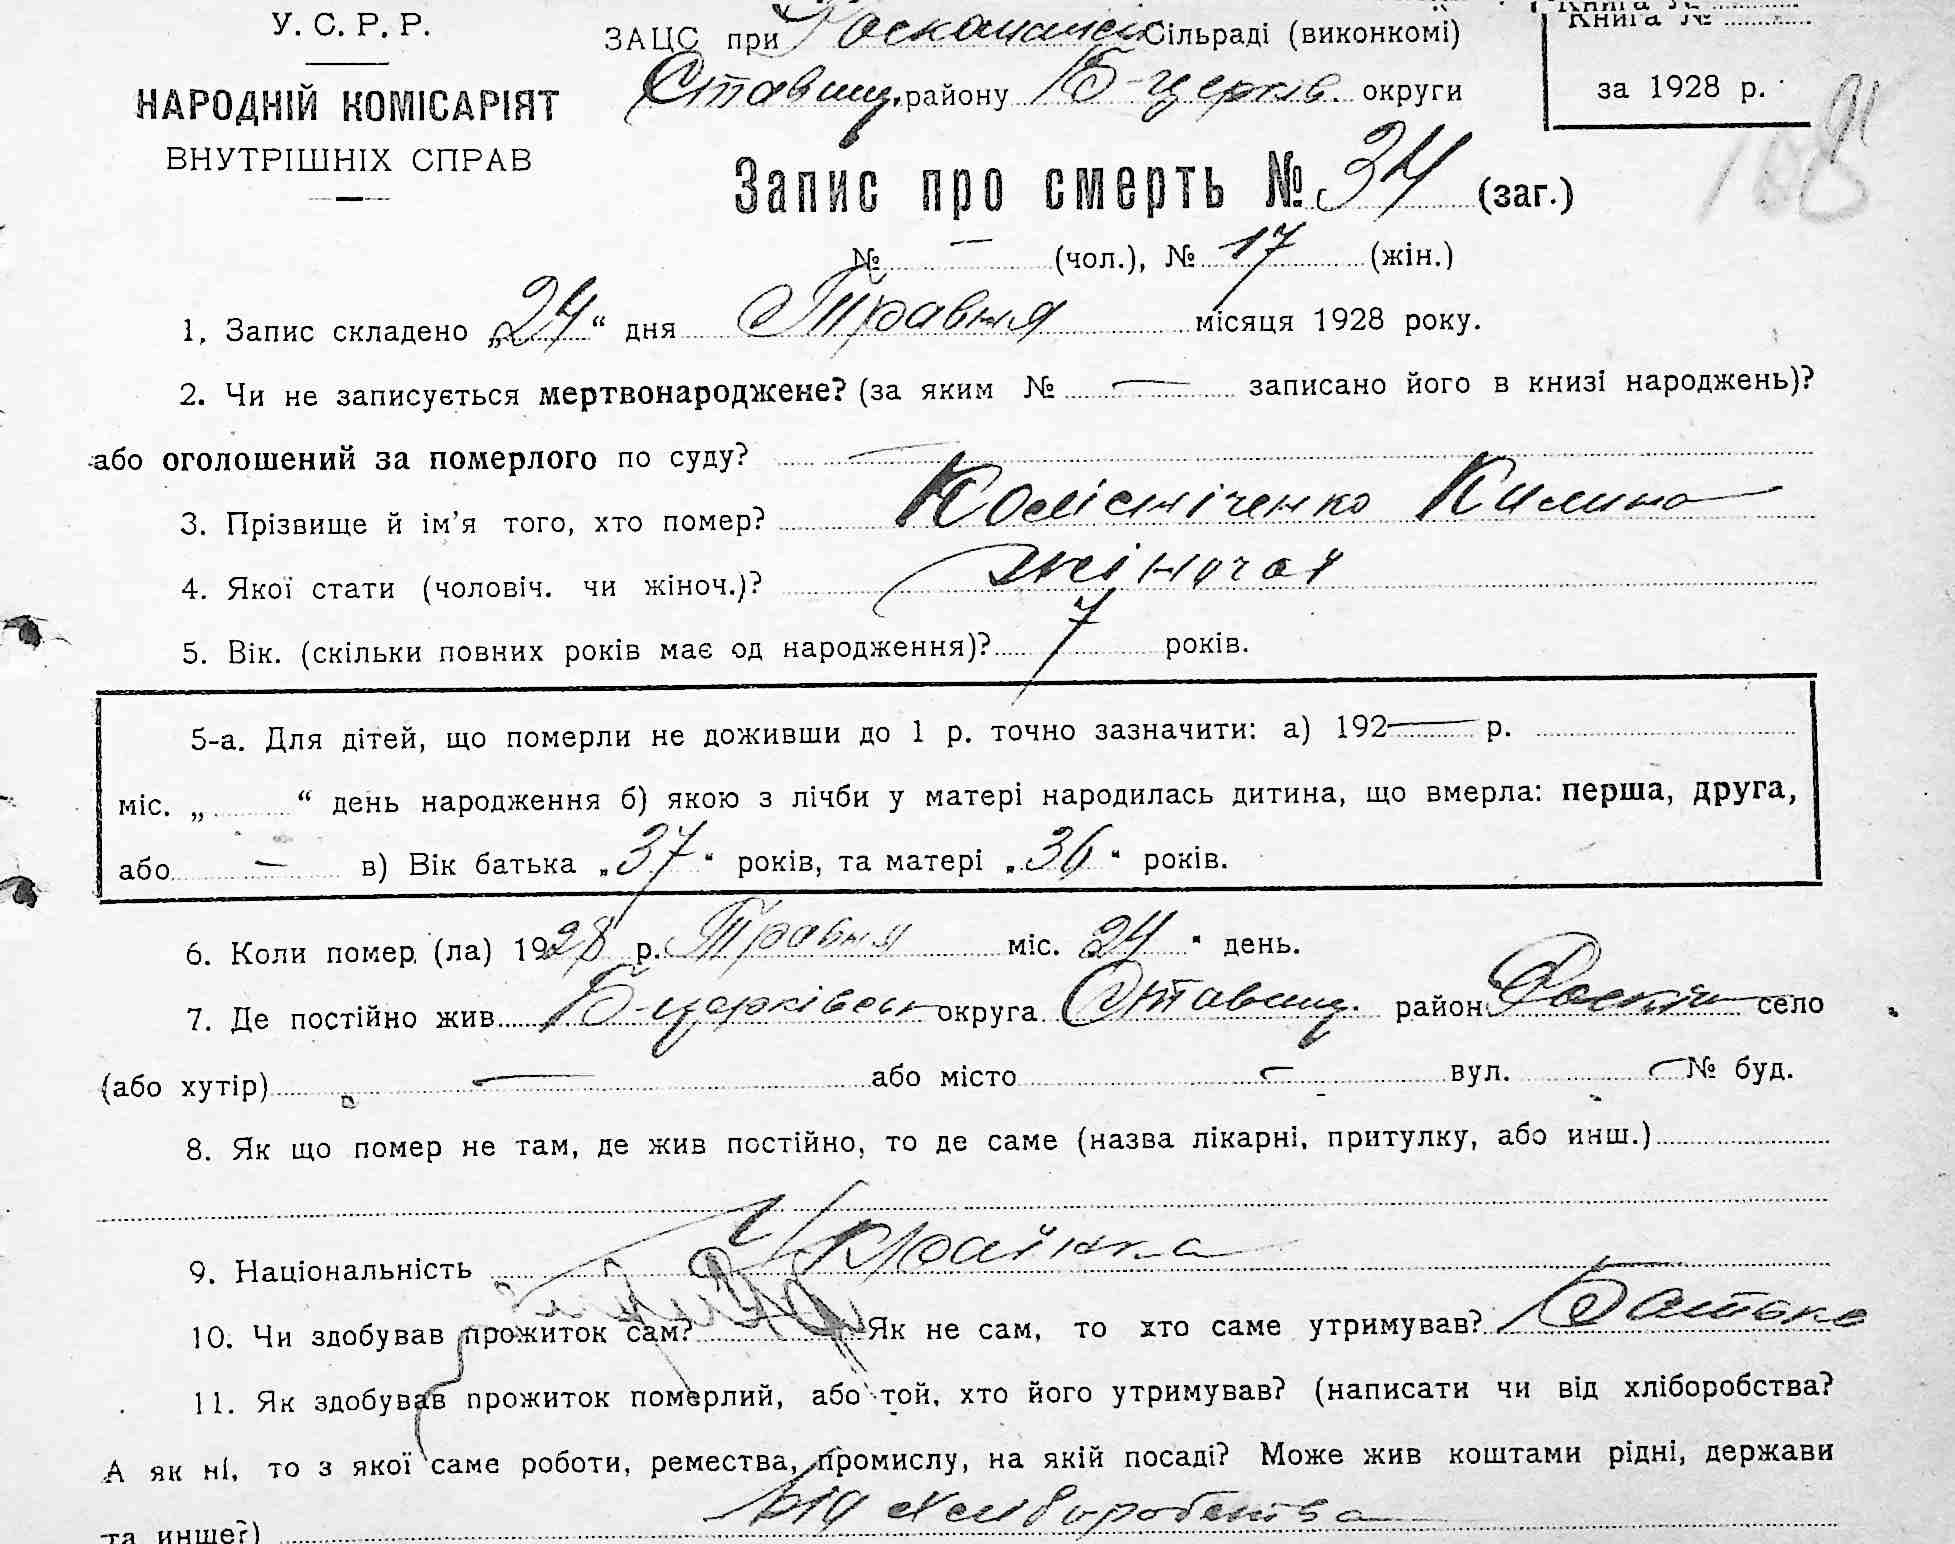 У. С. Р. Р.
НАРОДНІЙ КОМІСАРІЯТ
ВНУТРІШНІХ СПРАВ
ЗАЦС при Сільраді (виконкомі)
Ставищ. району Б-церків. округи
Книга №
за 1928 р.
Запис про смерть № 34 (заг.)
№ — (чол.), № 17 (жін.)
1, Запис складено „24“ дня Травня місяця 1928 року.
2. Чи не записується мертвонароджене? (за яким № — записано його в книзі народжень)?
або оголошений за померлого по суду? —
3. Прізвище й ім'я того, хто помер? Колісніченко Килина
4. Якої стати (чоловіч. чи жіноч.)? жіночої
5. Вік. (скільки повних років має од народження)? 7 років.
5-а. Для дітей, що померли не доживши до 1 р. точно зазначити: а) 192— р.
міс. „ “ день народження б) якою з лічби у матері народилась дитина, що вмерла: перша, друга,
або — в) Вік батька „37“ років, та матері „36“ років.
6. Коли помер (ла) 1928 р. Травня міс. 24 “ день.
7. Де постійно жив Б-церківськ округа Ставищ. район село
(або хутір) — або місто — вул. — № буд.
8. Як що помер не там, де жив постійно, то де саме (назва лікарні, притулку, або инш.)
9. Національність Українка
10. Чи здобував прожиток сам? Як не сам, то хто саме утримував? Батько
11. Як здобував прожиток померлий, або той, хто його утримував? (написати чи від хліборобства?
А як ні, то з якої саме роботи, ремества, промислу, на якій посаді? Може жив коштами рідні, держави
та инше?) Від хліборобства